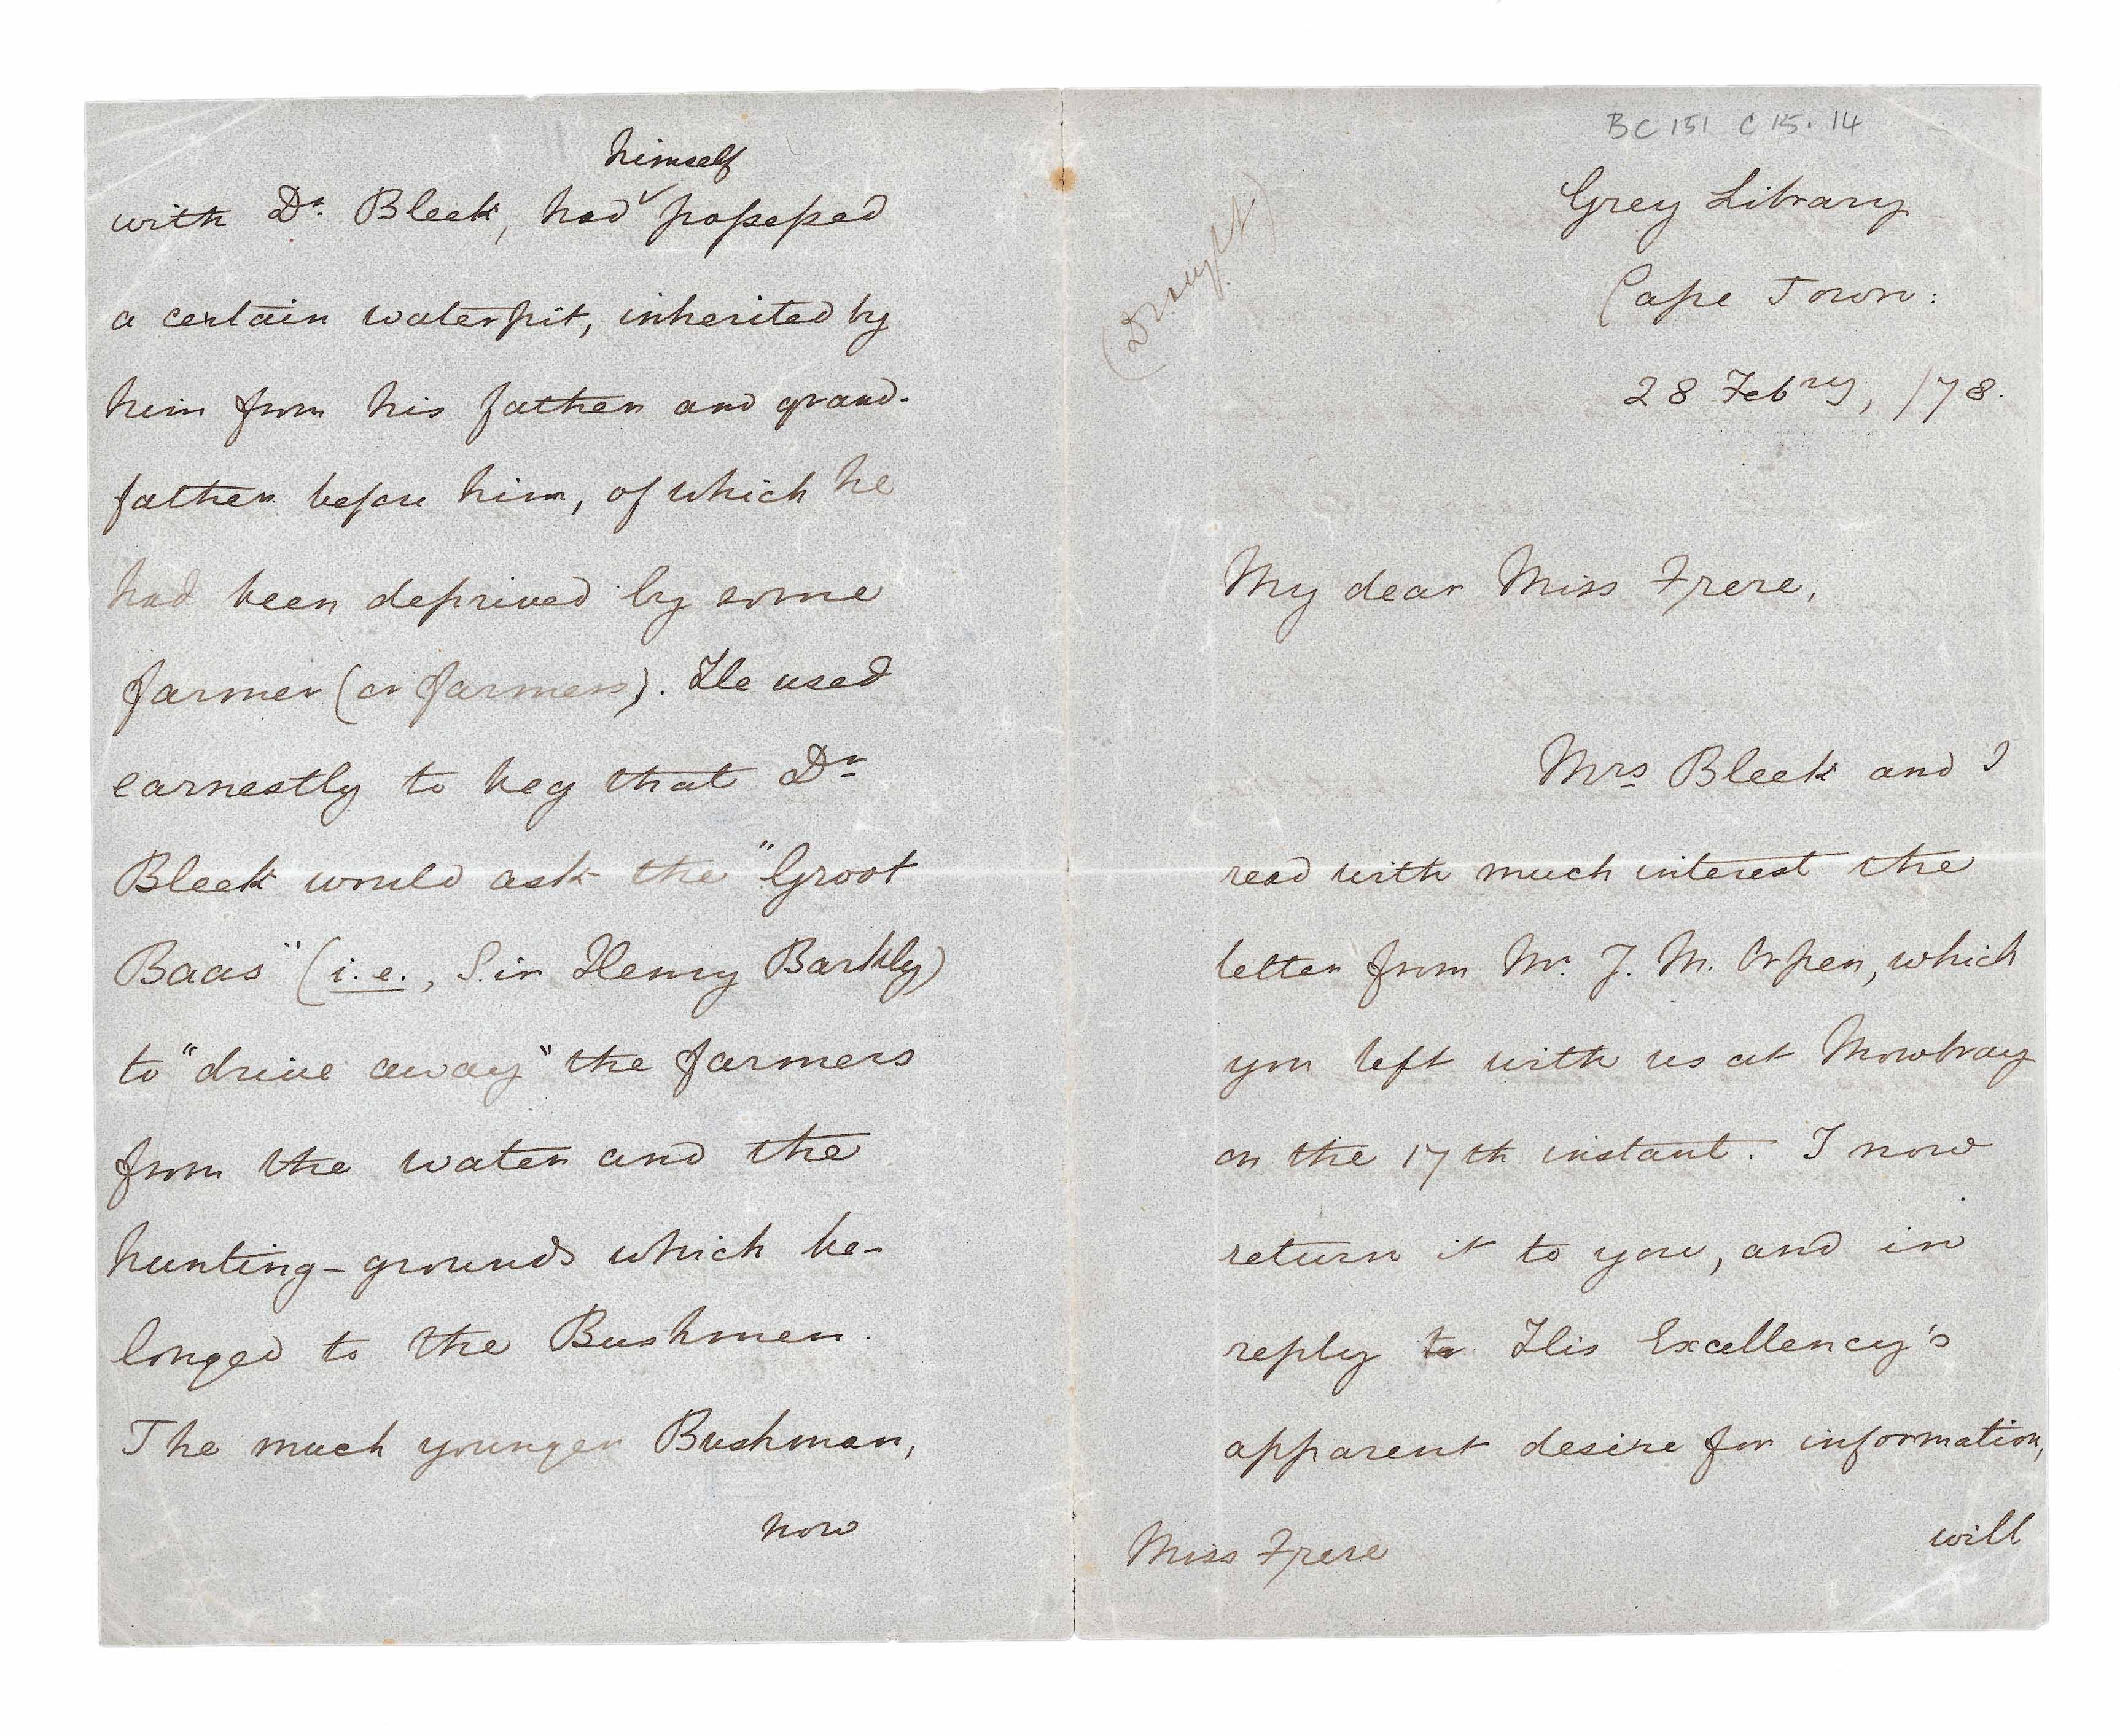 himself
with Dr. Bleek, had possessed
a certain waterpit, inherited by
him from his father and grand-
father before him, of which he
had been deprived by some
farmer (or farmers). He used
earnestly to beg that Dr
Bleek would ask the "Groot
Baas" (i.e., Sir Henry Barkly)
to "drive away" the farmers
from the water and the
hunting-grounds which be-
longed to the Bushmen.
The much younger Bushman,
now
BC 151 C 15.14
(Draught)
Grey Library
Cape Town:
28 Febry, /78.
My dear Miss Frere,
Mrs Bleek and I
read with much interest the
letter from Mr. J. M. Orpen, which
you left with us at Mowbray
on the 17th instant. I now
return it to you, and in
reply to His Excellency's
apparent desire for information,
will
Miss Frere